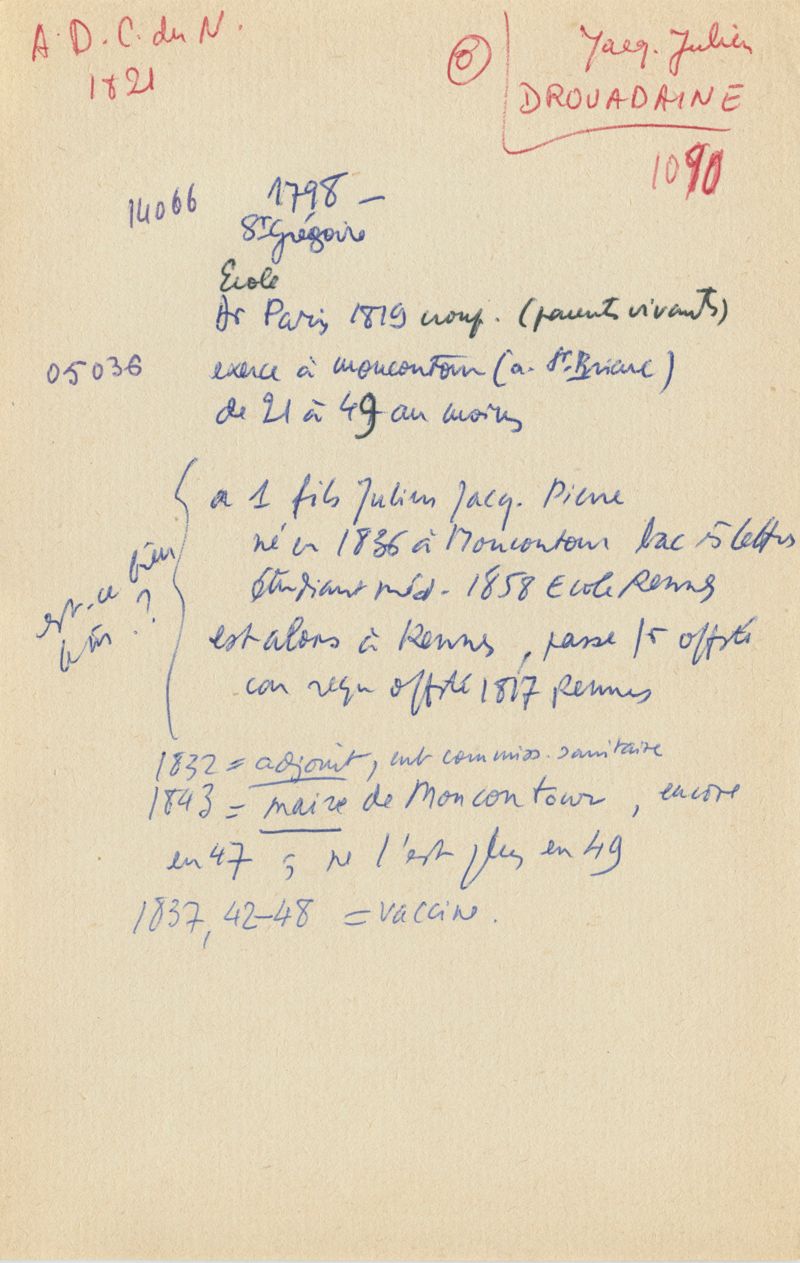 A. D. C. du N.
1821
Jacq. Julien
DROUADAINE
1090
14066
1798 –
St Grégoire
Ecole
Dr Paris 1819 croup. (parents vivants)
05036
exerce à Moncontour (a. St. Brieuc)
de 21 à 49 au moins
est-ce bien
lui ?
a 1 fils Julien Jacq. Pierre
né en 1836 à Moncontour bac ès lettres
étudiant méd. 1858 Ecole Rennes
est alors à Rennes, passe
1817 Rennes
1832 = adjoint, commiss. sanitaire
1843 = maire de Moncontour, encore
en 47 ; ne l'est plus en 49
1837, 42–48 = vaccine.